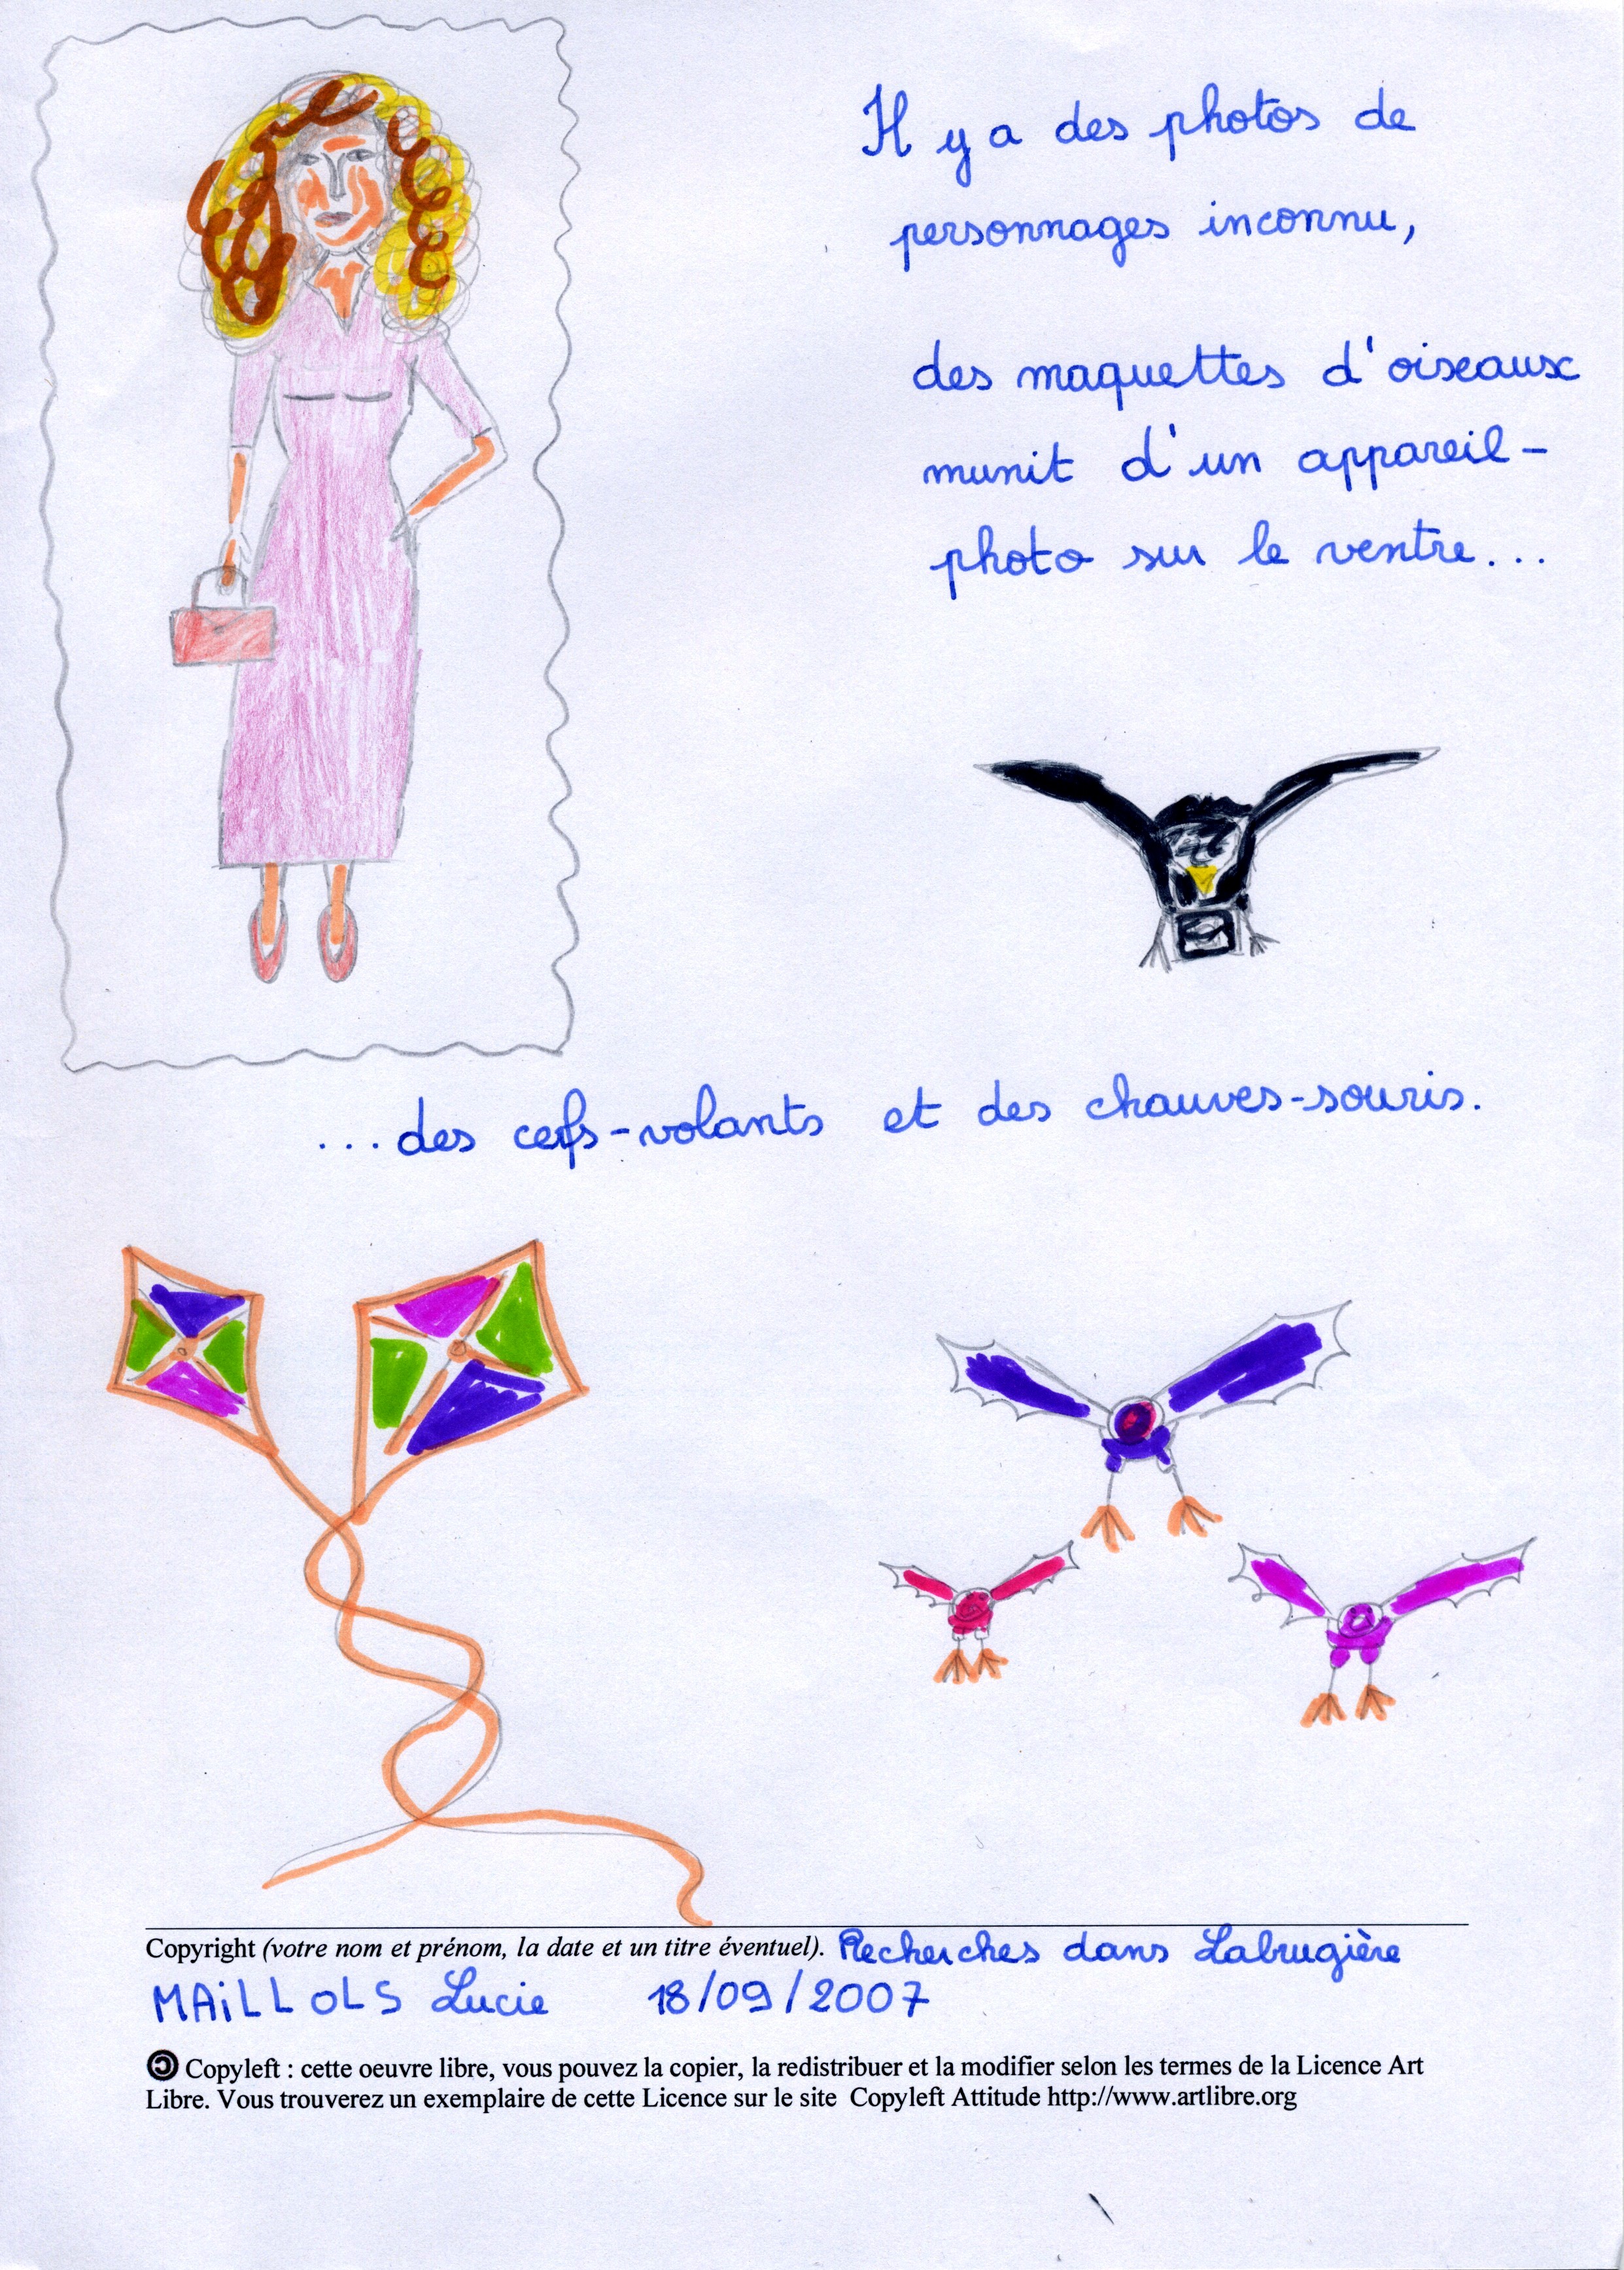 Il y a des photos de
personnages inconnu,
des maquettes d'oiseaux
munit d'un appareil-
photo sur le ventre...
...des cerfs-volants et des chauves-souris.
Copyright (votre nom et prénom, la date et un titre éventuel). Recherches dans Labrugière
MAiLLOLS Lucie 18/09/2007
Copyleft : cette oeuvre libre, vous pouvez la copier, la redistribuer et la modifier selon les termes de la Licence Art
Libre. Vous trouverez un exemplaire de cette Licence sur le site Copyleft Attitude http://www.artlibre.org